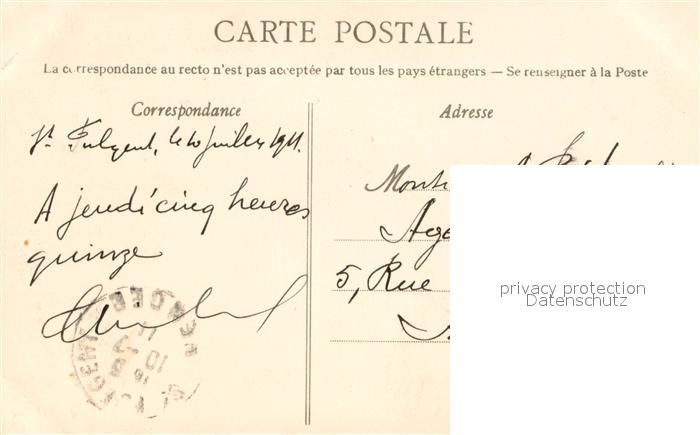 CARTE POSTALE
La correspondance au recto n'est pas acceptée par tous les pays étrangers — Se renseigner à la Poste
Correspondance
St Fulgent, le 10 juillet 1911.
A jeudi cinq heures
quinze
Adresse
5, Rue
privacy protection
Datenschutz
VENDÉE